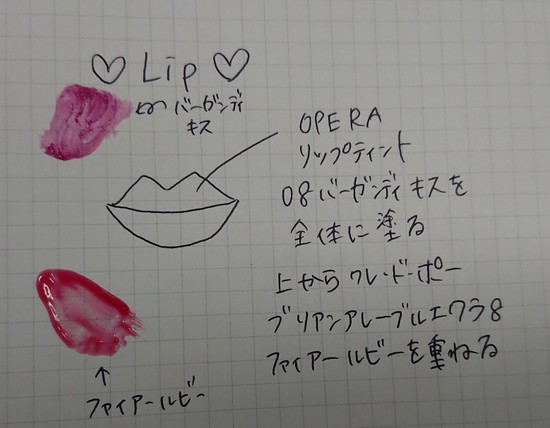 ♡ Lip ♡
バーガンディ
キス
OPERA
リップティント
08バーガンディキスを
全体に塗る
上からクレ・ド・ポー
ブリアンアレーブルエクラ8
ファイアールビーを重ねる
↑
ファイアールビー